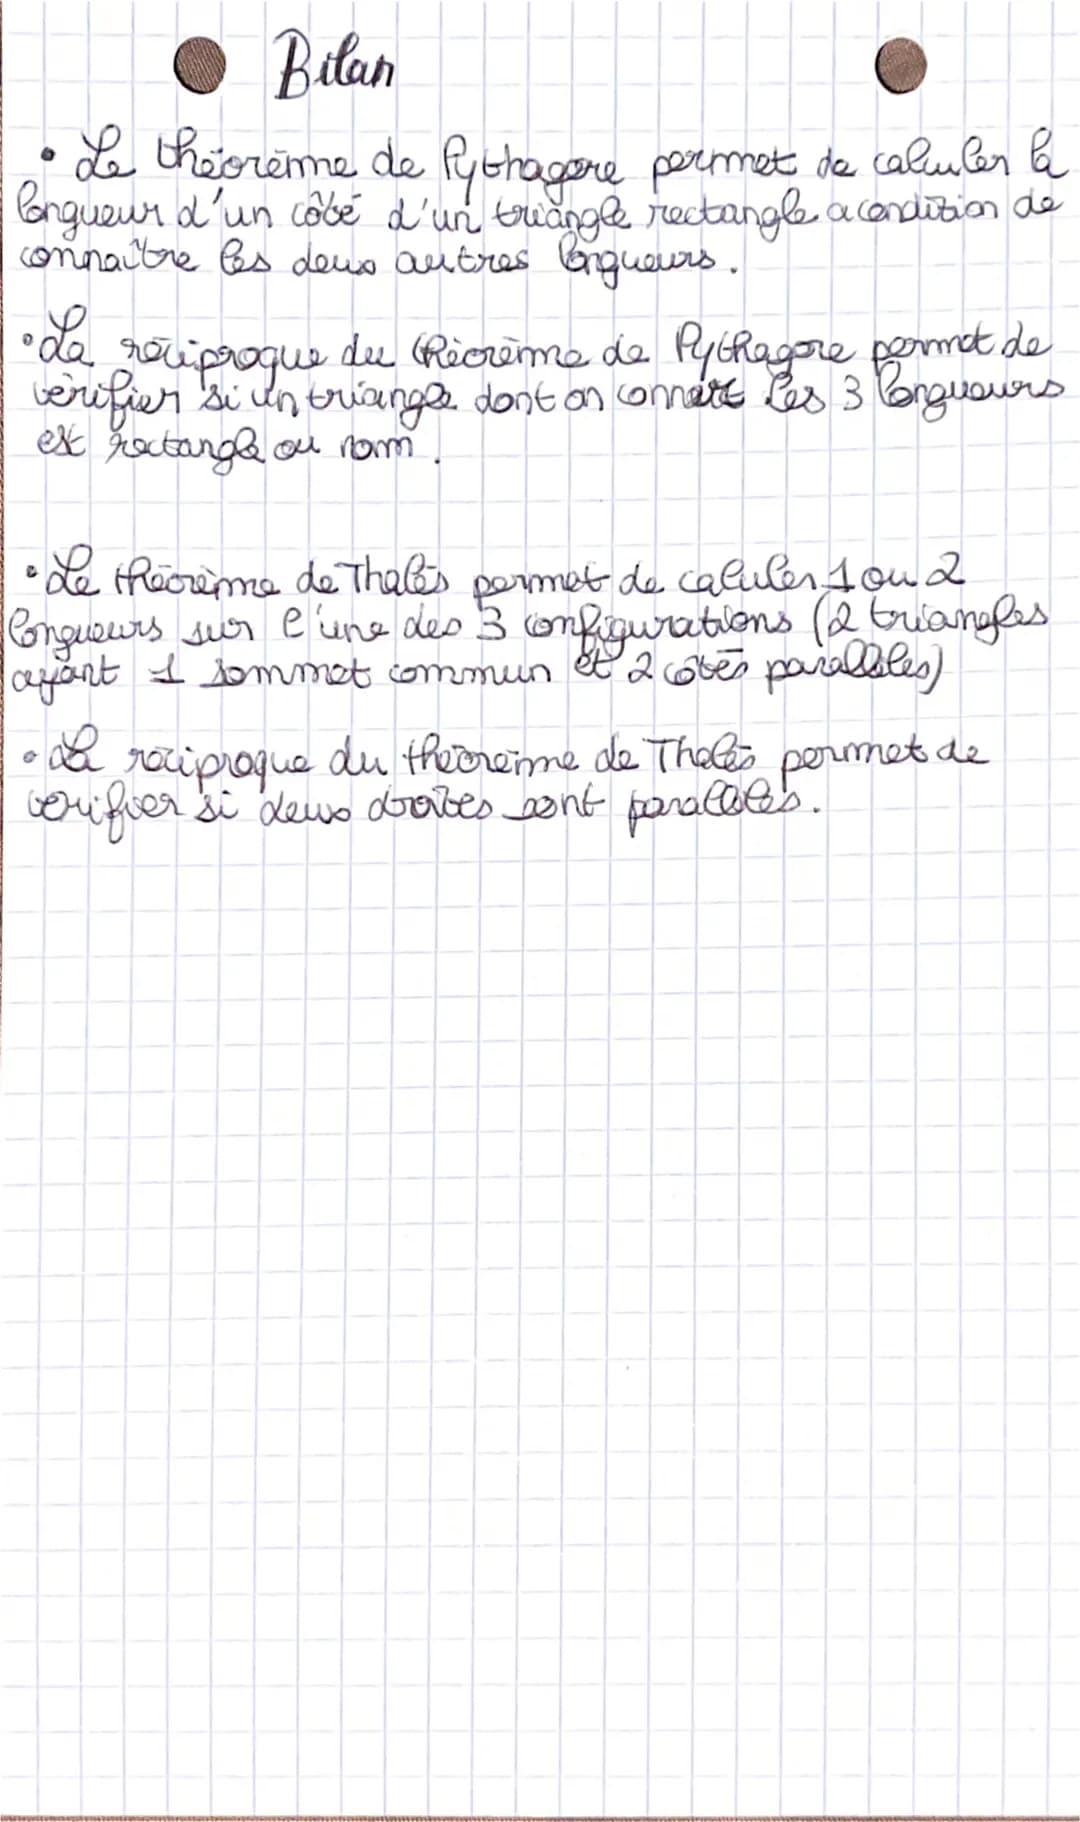 Bilan
• Le théorème de Pythagore permet de calculer la
longueur d'un côté d'un triangle rectangle a condition de
connaître les deux autres longueurs.
• La réciproque du théorème de Pythagore permet de
vérifier si un triangle dont on connait les 3 longueurs
est rectangle ou nom.
• Le théorème de Thalès permet de calculer 1 ou 2
longueurs sur l'une des 3 configurations (2 triangles
ayant 1 sommet commun et 2 côtés parallèles)
• La réciproque du théorème de Thalès permet de
vérifier si deux droites sont parallèles.